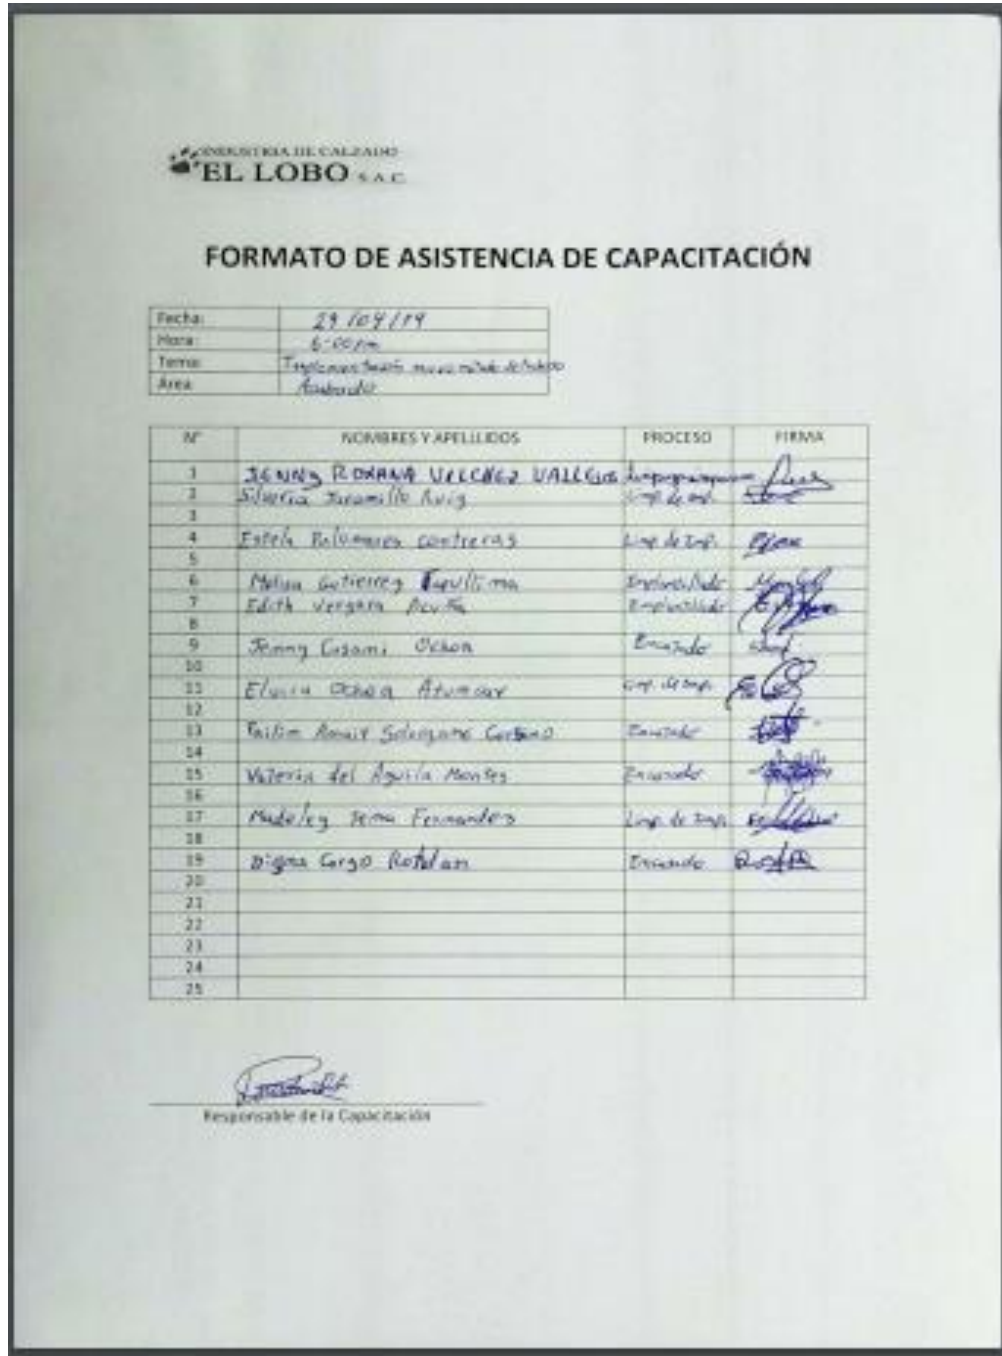 INDUSTRIA DE CALZADO
EL LOBO S.A.C.
FORMATO DE ASISTENCIA DE CAPACITACIÓN
Fecha: 29/04/19
Hora: 6:00 pm
Tema: Implementación nuevo método de trabajo
Área: Acabado
N° NOMBRES Y APELLIDOS PROCESO FIRMA
1 JENNY ROXANA VILCHEZ VALLEJOS
2 Silveria Jaramillo Ruiz Limp. de Imp.
3
4 Estela Palomares contreras Limp de Imp.
5
6 Melisa Gutierrez Emplantillado
7 Edith Vergara Acuña Emplantillado
8
9 Jenny Casami Ochoa Encajado
10
11 Elvira Ochoa Limp. de Imp.
12
13 Solorzano Encajado
14
15 Valeria del Aguila Montes Encajado
16
17 Madeley Fernandez Limp. de Imp.
18
19 Digna Cargo Encajado
20
21
22
23
24
25
Responsable de la Capacitación